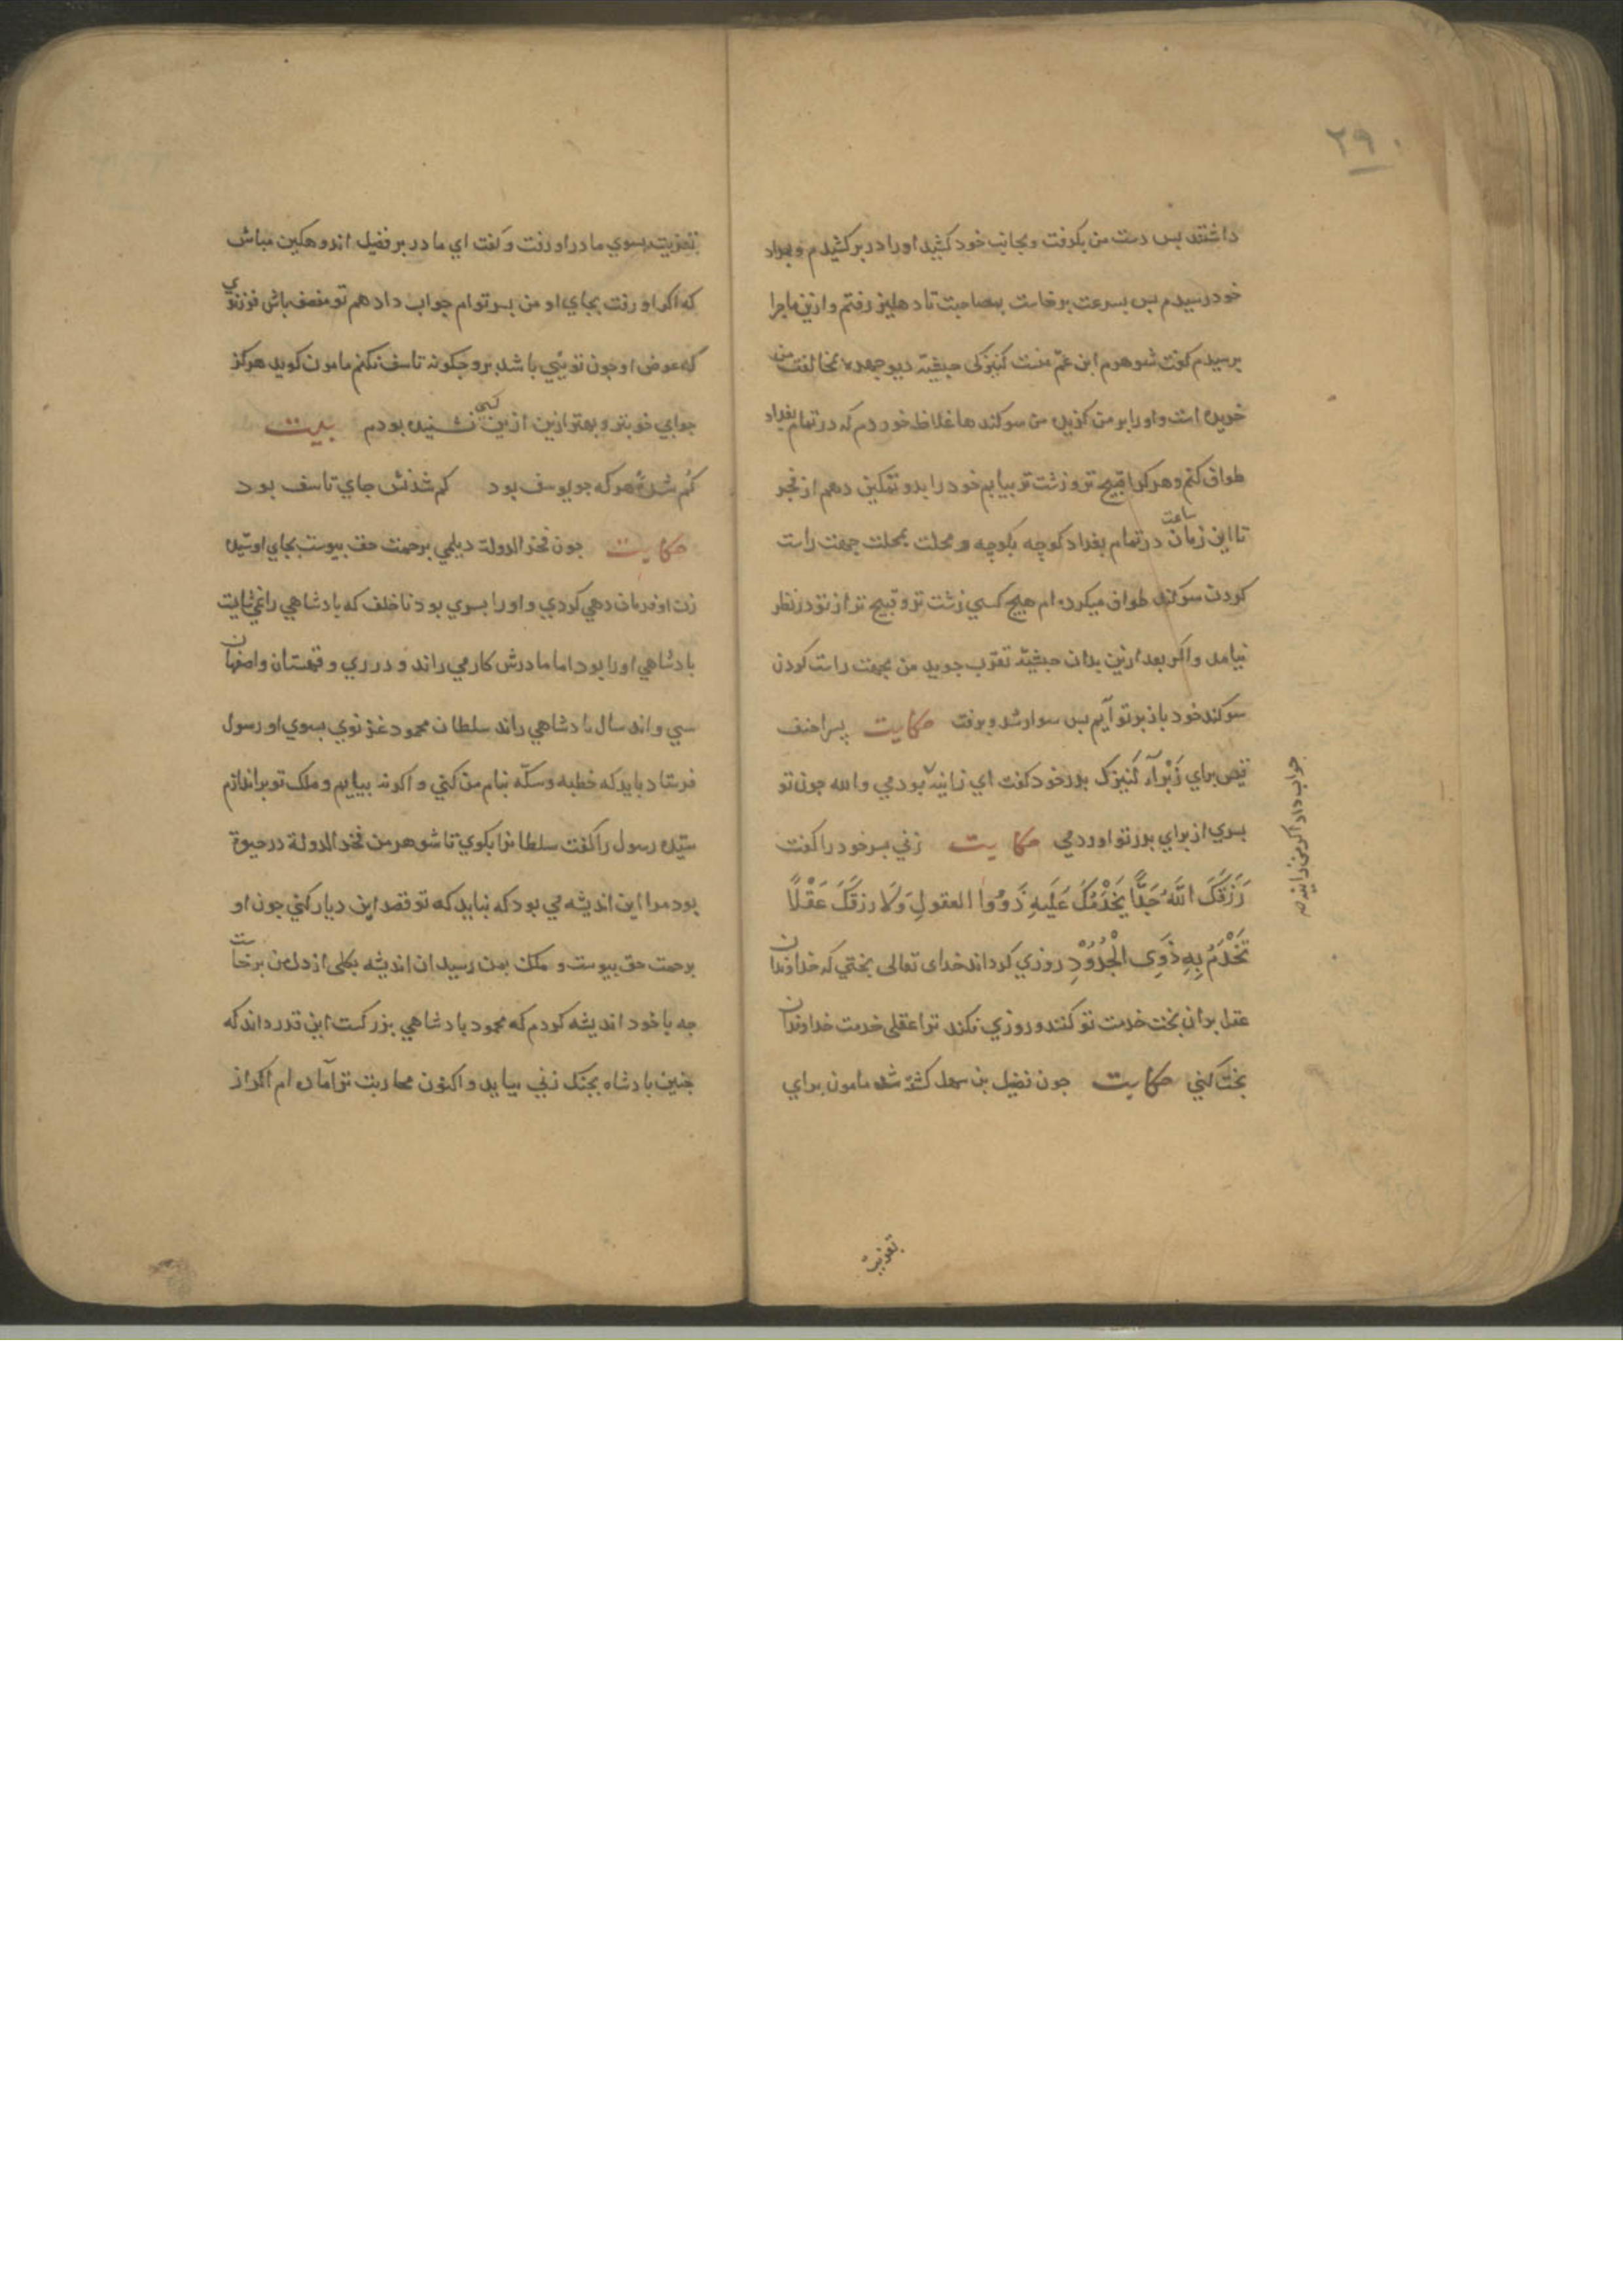 ۲۹۰
داشتند بس دست من بکرفت وبجانب خود کشید اورا در بر کشیدم وبمراد
خود رسیدم بس بسرعت برخاست بمصاحبت تا دهلیز رفتم وازین ماجرا
برسیدم کفت شوهرم ابن عمّ منست کنیزکی حبشیّه دیو جهره بمخالفت من
خریده است واورا بر من کزیده من سوکندها غلاظ خوردم که در تمام بغداد
طواف کنم وهر کرا قبیح تر و زشت تر بیابم خود را بدو تمکین دهم از فجر
تا این زمان ساعت در تمام بغداد کوچه بکوچه و محلت بمحلت جهت راست
کردن سوکند طواف میکرده ام هیچ کسی زشت تر و قبیح تر از تو در نظر
نیامد واکر بعد ازین بدان حبشیّه تقرّب جوید من بجهت راست کردن
سوکند خود باز بر تو آیم بس سوار شد و برفت حکایت پسر احنف
قیس برای زَبْرآء کنیزک بدر خود کفت ای زانیه بودمی والله جون تو
بسری از برای بدر تو اوردمی حکایت زنی بسر خود را کفت
رَزَقَكَ اللّٰهُ جَدًّا يَخْدُمُكَ عَلَيهِ ذَوُوا العقولِ وَلَا رزقَكَ عَقْلًا
تَخْدُمُ بِهِ ذَوِى الْجُدُوْدِ روزی کرداند خدای تعالی بختی که خداوندان
عقل بدان بخت خدمت تو کنند و روزی نکند ترا عقلی خدمت خداوندان
بخت کنی حکایت جون فضیل بن سهل کشته شد مامون برای
جواب داد اکر من زانیه
تعزیت
تعزیت بسوی مادر او رفت و کفت ای مادر بر فضیل اندوهکین مباش
که اکر او رفت بجای او من بسر توام جواب داد هم تو منصف باش فرزندی
که عوض او جون تویی باشد برو جکونه تاسف نکنم مامون کوید هرکز
جوابی خوبتر و بهتر ازین از کسی نشنیده بودم بیت
کم شدهٔ هر که جو یوسف بود کم شدنش جای تاسف بود
حکایت جون فخر الدولة دیلمی برحمت حق بیوست بجای او سیّده
زن او فرمان دهی کردی و اورا بسری بود ناخلف که بادشاهی را نمی شایت
بادشاهی اورا بود اما مادرش کار می راند و در ری و قهستان واصفهان
سی و اند سال بادشاهی راند سلطان محمود غزنوی بسوی او رسول
فرستاد باید که خطبه و سکّه بنام من کنی و اکر نه بیایم و ملک تو براندازم
سیّده رسول را کفت سلطانرا بکوی تا شوهر من فخر الدولة در حیوة
بود مرا این اندیشه می بود که نباید که تو قصد این دیار کنی جون او
برحمت حق بیوست و ملک بمن رسید ان اندیشه بکلی از دل من برخاست
جه با خود اندیشه کردم که محمود بادشاهی بزرکست این قدر داند که
جنین بادشاه بجنک زنی بیاید و اکنون محاربت ترا آماده ام اکر از